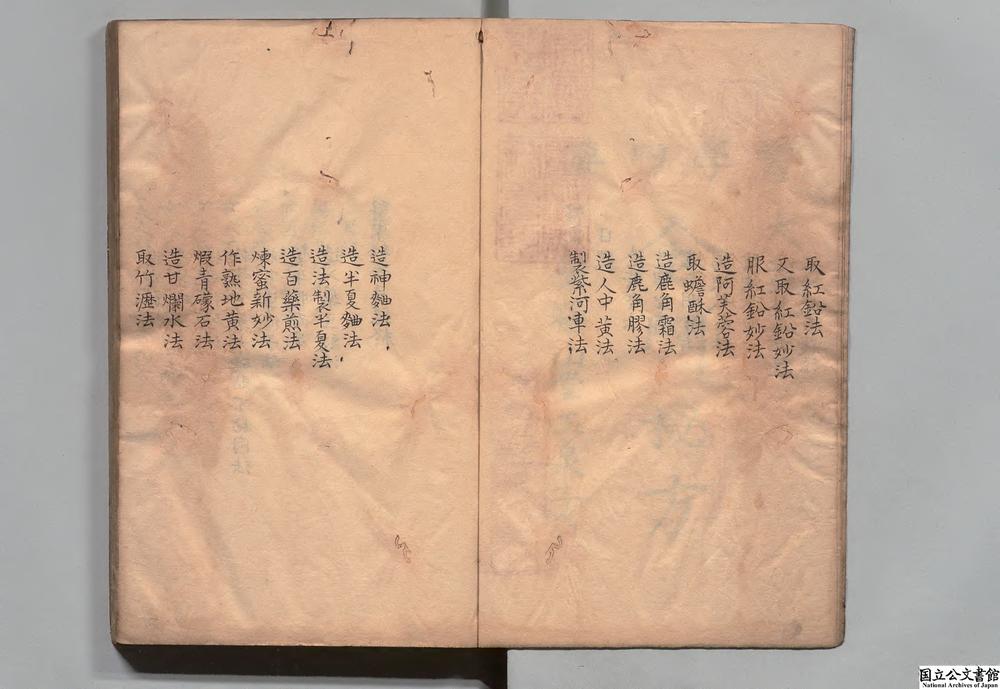 取紅鉛法
又取紅鉛妙法
服紅鉛妙法
造阿芙蓉法
取蟾酥法
造鹿角霜法
造鹿角膠法
造人中黄法
製紫河車法
造神麯法
造半夏麯法
造法製半夏法
造百藥煎法
煉蜜新妙法
作熟地黄法
煆青礞石法
造甘爛水法
取竹瀝法
国立公文書館
National Archives of Japan